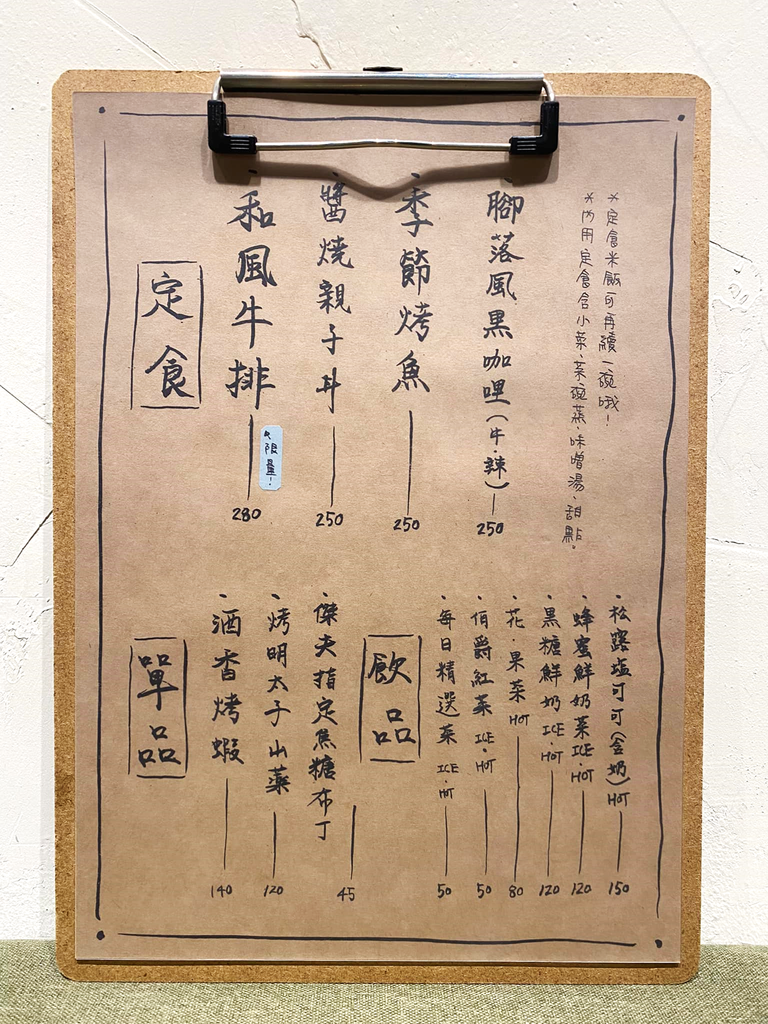 定食
・和風牛排 280
限量!
・醬燒親子丼 250
・季節烤魚 250
・腳落風黑咖哩(牛.辣) 250
*內用定食含小菜、茶碗蒸、味噌湯、甜點。
*定食米飯可再續一碗哦!
單品
・酒香烤蝦 140
・烤明太子山藥 120
・傑夫指定焦糖布丁 45
飲品
・每日精選茶 ICE・HOT 50
・伯爵紅茶 ICE・HOT 50
・花.果茶 HOT 80
・黑糖鮮奶 ICE・HOT 120
・蜂蜜鮮奶茶 ICE・HOT 120
・松露塩可可(含奶) HOT 150